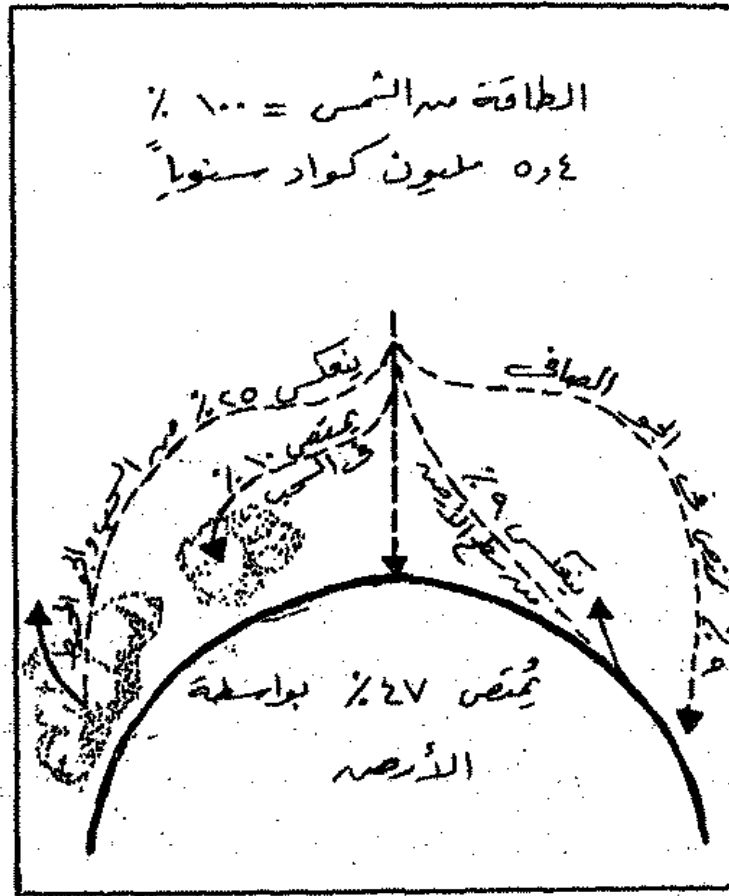 الطاقة من الشمس = ١٠٠ ٪
٥,٤ مليون كواد سنوياً
ينعكس ٢٥٪ من السحب والجو المحيط
يمتص ١٠٪
في السحب
ينعكس ٩٪
من سطح الأرض
٩٪ يمتص في الجو الصافي
يُمتص ٤٧٪ بواسطة
الأرض